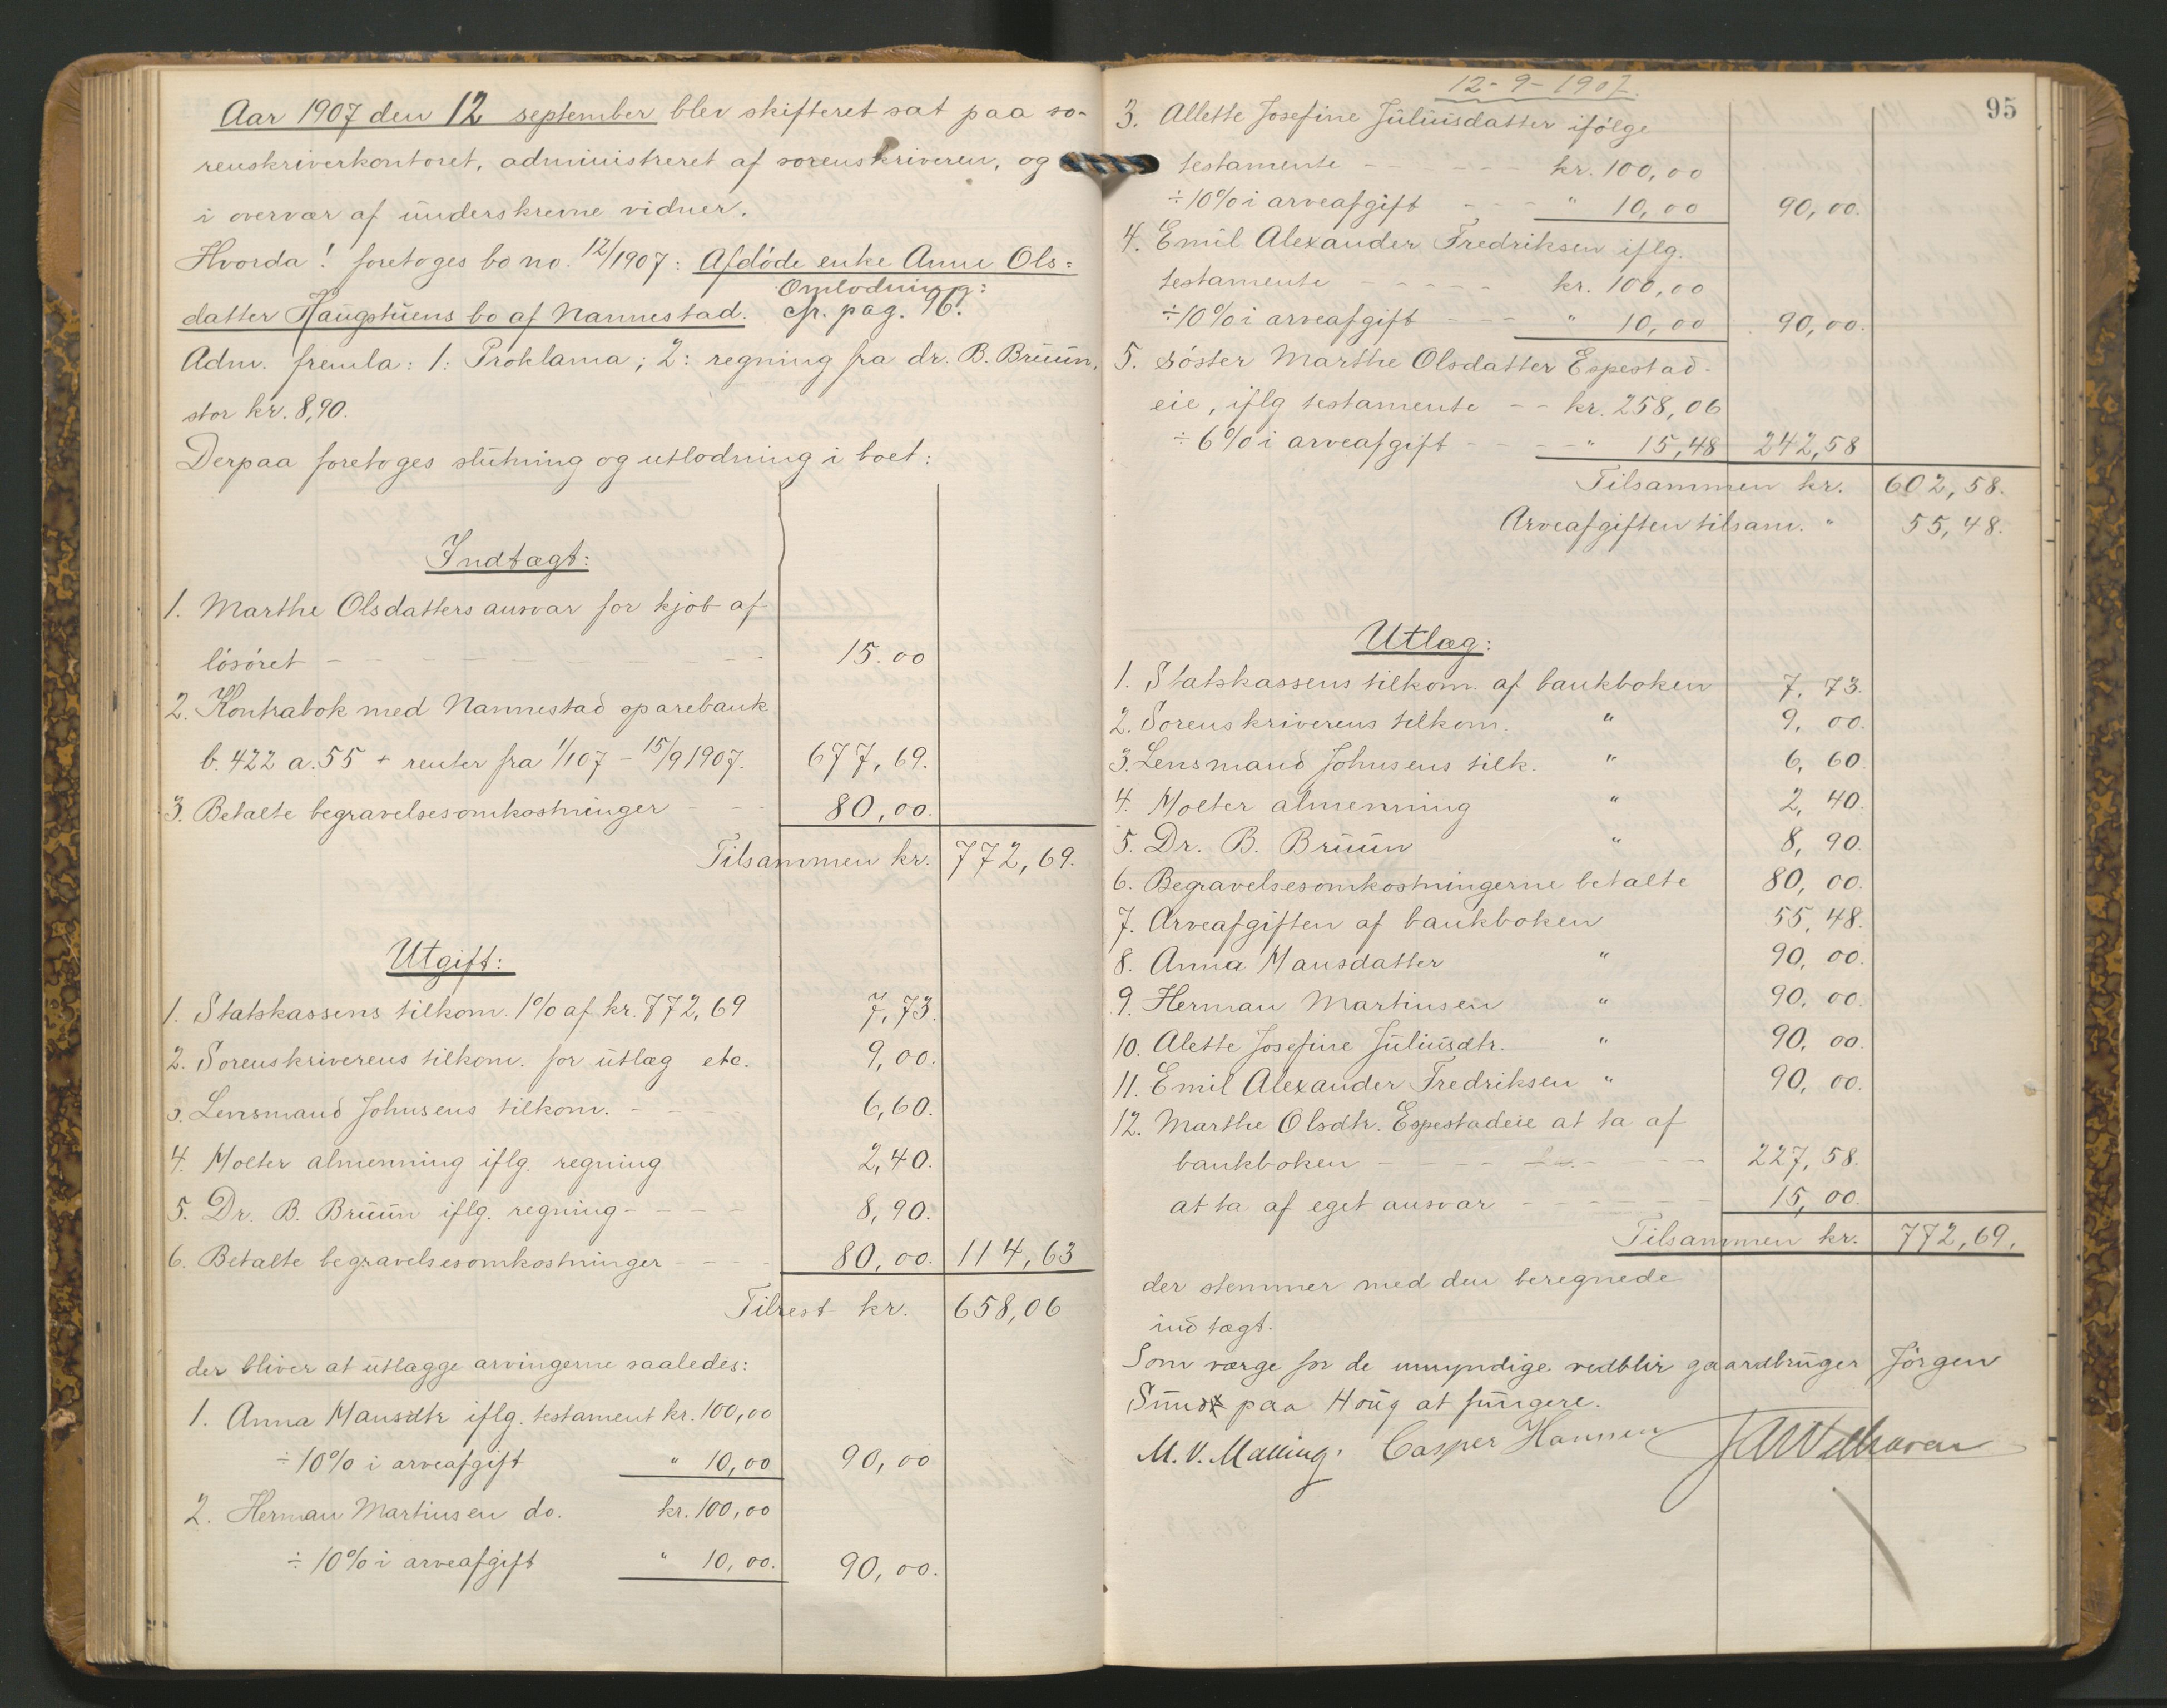 Aar 1907 den 12 september blev skifteret sat paa so-
renskriverkontoret, administreret af sorenskriveren, og
i overvær af underskrevne vidner.
Hvorda! foretoges bo no. 12/1907: Afdøde enke Anne Ols=
Omlodning:
datter Haugstuens bo af Nannestad. cfr. pag. 96.
Adm. fremla: 1: Proklama; 2: regning fra dr. B. Bruun,
stor kr. 8,90.
Derpaa foretoges slutning og utlodning i boet:
Indtægt:
1. Marthe Olsdatters ansvar for kjøb af
løsøret - - - - - - - 15.00
2. Kontrabok med Nannestad sparebank
b. 422 a. 55 + renter fra 1/1 07 - 15/9 1907. 677,69.
3. Betalte begravelsesomkostninger - - 80,00.
Tilsammen kr. 772,69.
Utgift:
1. Statskassens tilkom. 1% af kr. 772,69 7,73.
2. Sorenskriverens tilkom. for utlæg etc. 9,00.
3. Lensmand Johnsens tilkom. - - 6,60.
4. Holter almenning iflg. regning 2,40.
5. Dr. B. Bruun iflg. regning - - - - 8,90.
6. Betalte begravelsesomkostninger - - - 80,00. 114,63
Tilrest kr. 658,06
der bliver at utlægge arvingerne saaledes:
1. Anna Hansdtr iflg. testament kr. 100,00
÷ 10% i arveafgift " 10,00 90,00
2. Herman Martinsen do. kr. 100,00
÷ 10% i arveafgift " 10,00. 90,00.
12-9-1907.
95
3. Allette Josefine Juliusdatter ifølge
testamente - - - - - kr. 100,00
÷ 10% i arveafgift - - - " 10,00 90,00.
4. Emil Alexander Fredriksen iflg.
testamente - - - - - kr. 100,00
÷ 10% i arveafgift - - - " 10,00 90,00.
5. søster Marthe Olsdatter Espestad-
eie, iflg testamente - - kr. 258,06
÷ 6% i arveafgift - - - - " 15,48 242,58
Tilsammen kr. 602,58.
Arveafgiften tilsam. " 55,48.
Utlæg:
1. Statskassens tilkom. af bankboken 7,73.
2. Sorenskriverens tilkom. " 9,00.
3. Lensmand Johnsens tilk. " 6,60
4. Holter almenning " 2,40.
5. Dr. B. Bruun " 8,90.
6. Begravelsesomkostningerne betalte 80,00.
7. Arveafgiften af bankboken 55,48.
8. Anna Hansdatter " 90,00.
9. Herman Martinsen " 90,00.
10. Alette Josefine Juliusdtr. " 90,00.
11. Emil Alexander Fredriksen " 90,00.
12. Marthe Olsdtr. Espestadeie at ta af
bankboken - - - - - - - 227,58.
at ta af eget ansvar - - - - - 15,00.
Tilsammen kr. 772,69.
der stemmer med den beregnede
indtægt.
Som værge for de umyndige vedblir gaardbruger Jörgen
Sund paa Houg at fungere.
M. V. Malling. Casper Hannen